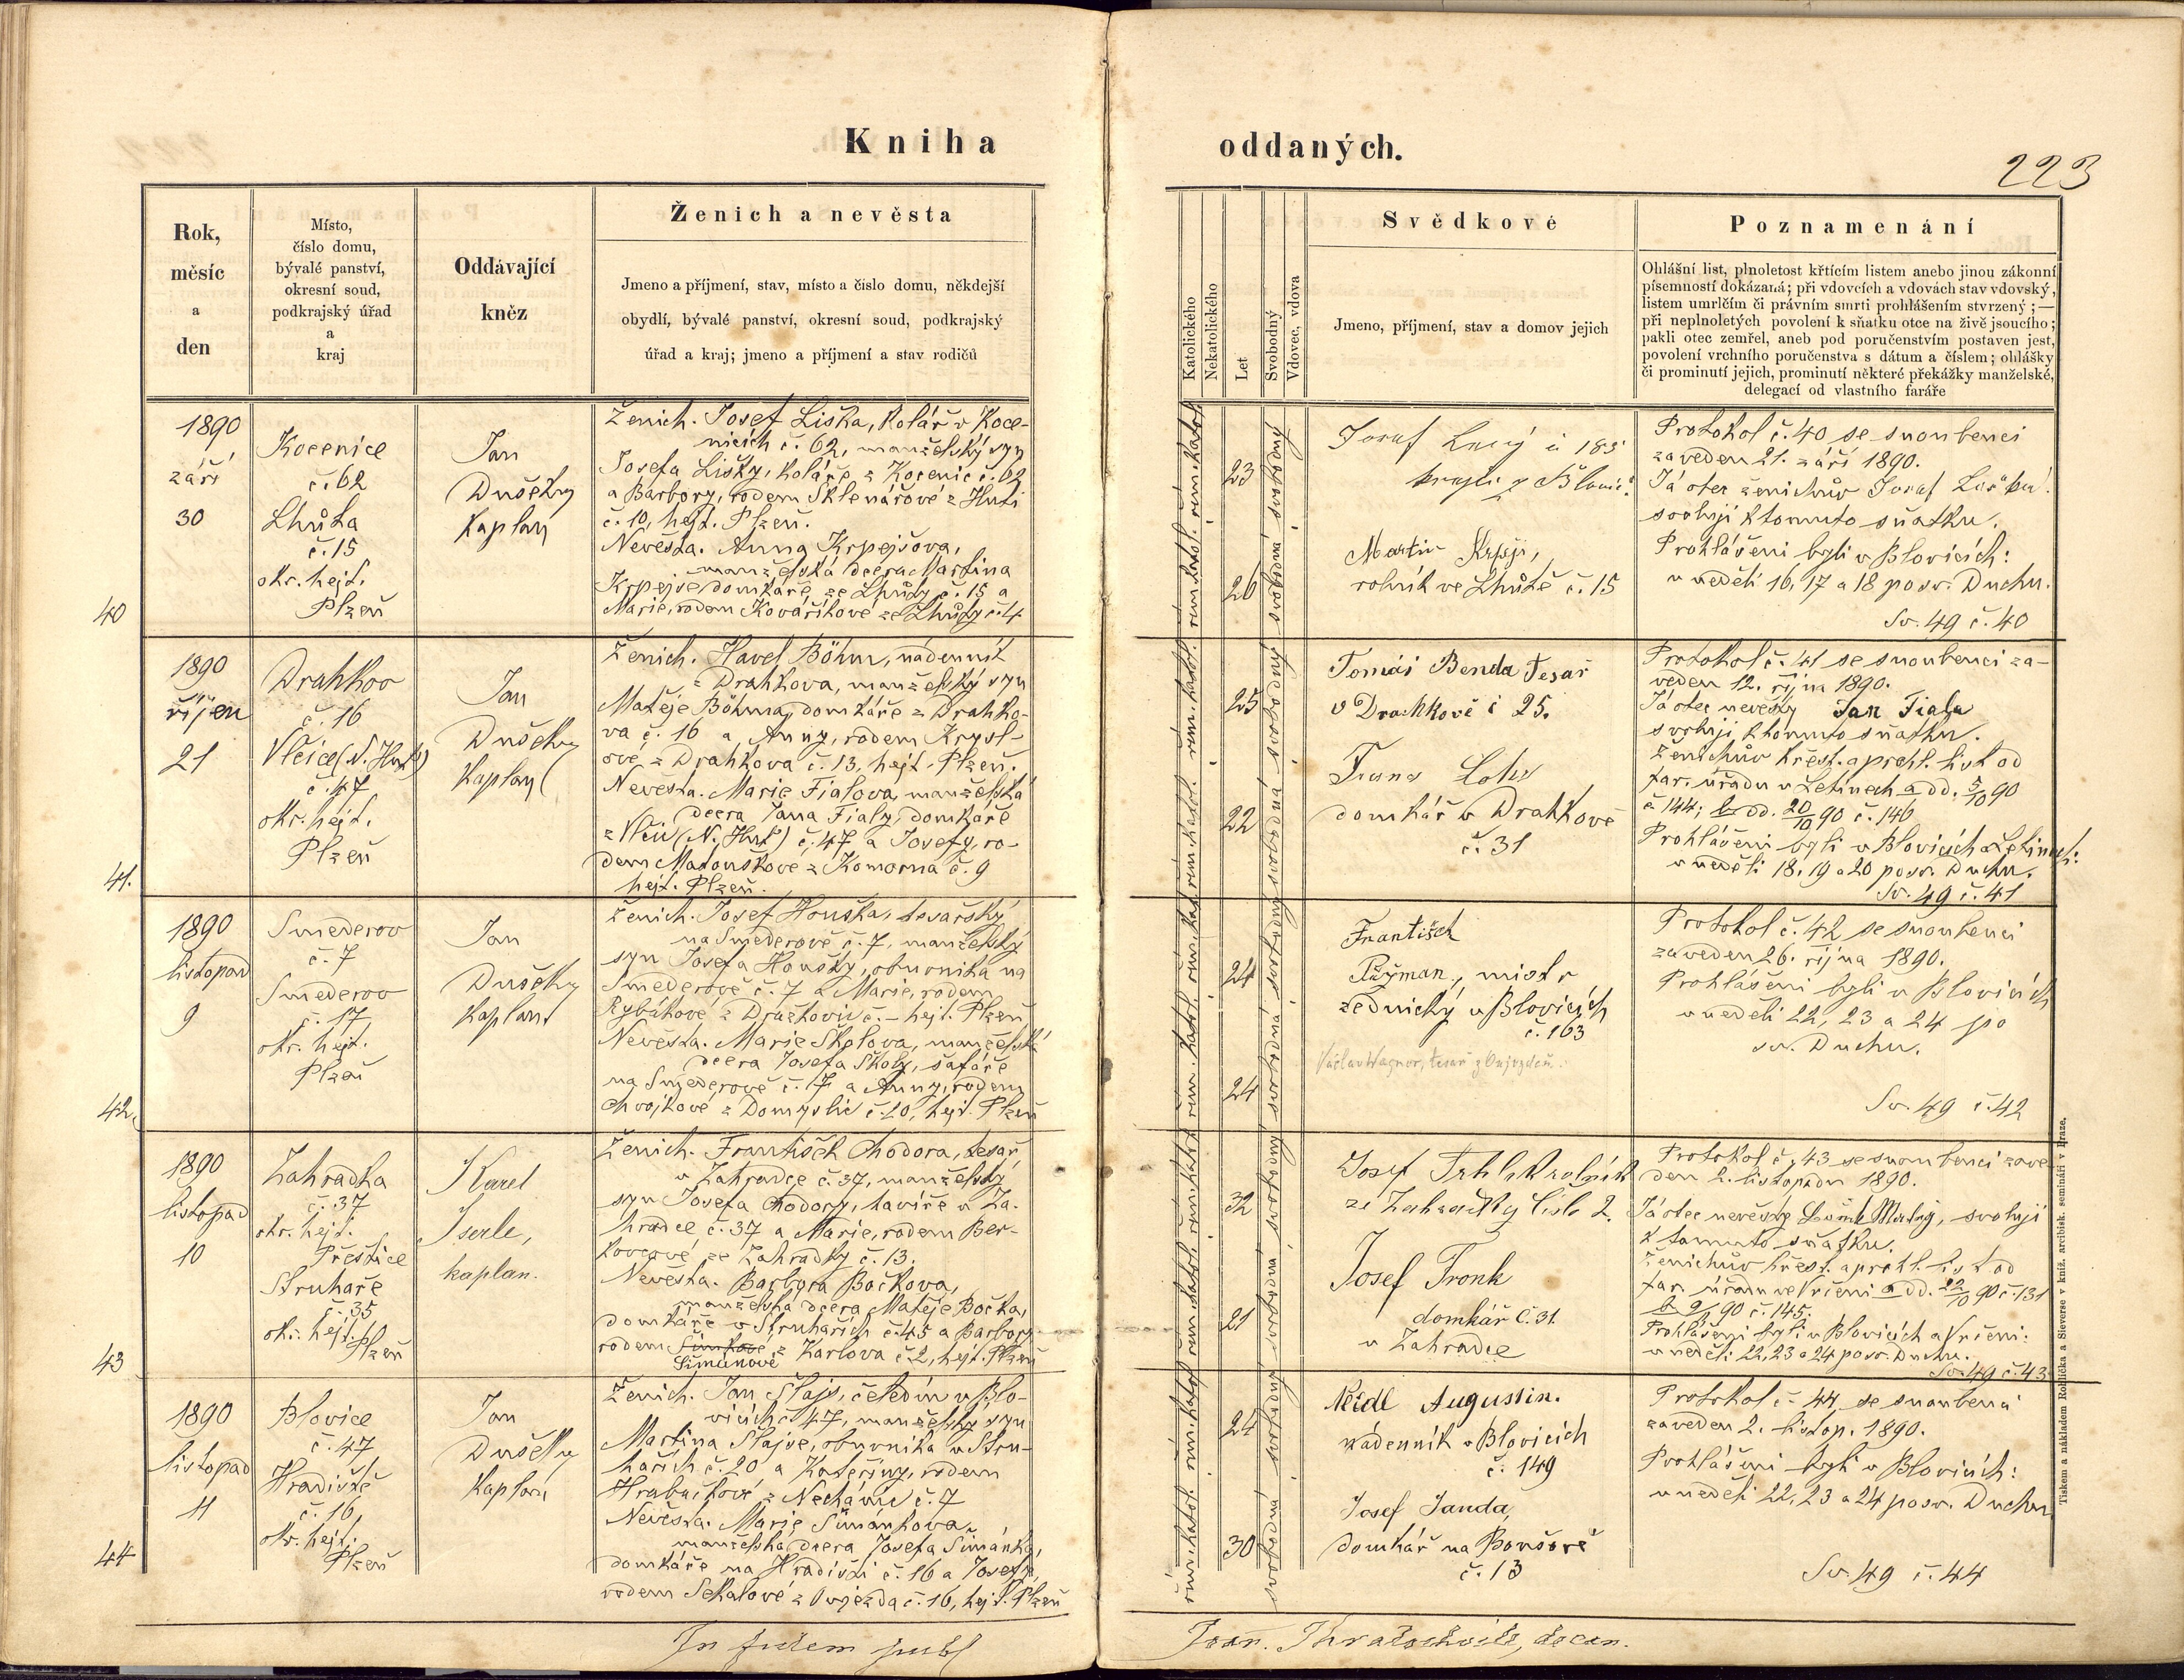 Kniha
oddaných.
223
Rok,
měsíc
a
den
Místo,
číslo domu,
bývalé panství,
okresní soud,
podkrajský úřad
a
kraj
Oddávající
kněz
Ženich a nevěsta
Jmeno a příjmení, stav, místo a číslo domu, někdejší
obydlí, bývalé panství, okresní soud, podkrajský
úřad a kraj; jmeno a příjmení a stav rodičů
Katolického
Nekatolického
Let
Svobodný
Vdovec, vdova
Svědkové
Jmeno, příjmení, stav a domov jejich
Poznamenání
Ohlášní list, plnoletost křtícím listem anebo jinou zákonní
písemností dokázaná; při vdovcích a vdovách stav vdovský,
listem umrlčím či právním smrti prohlášením stvrzený; —
při neplnoletých povolení k sňatku otce na živě jsoucího;
pakli otec zemřel, aneb pod poručenstvím postaven jest,
povolení vrchního poručenstva s dátum a číslem; ohlášky
či prominutí jejich, prominutí některé překážky manželské,
delegací od vlastního faráře
40
1890
září
30
Kocenice
č. 62
Lhůta
č. 15
okr. hejt.
Plzeň
Jan
Dušek
kaplan
Ženich. Josef Liška, kolář v Koce-
nicích č. 62, manželský syn
Josefa Lišky, koláře z Kocenic č. 62
a Barbory, rodem Sklenářové z Huti
č. 10, hejt. Plzeň.
Nevěsta. Anna Krpejšova,
manželská dcera Martina
Krpejše domkáře, ze Lhůty č. 15 a
Marie, rodem Kovaříkové ze Lhůty č. 4
23
26
Josef
Martin
rolník ve Lhůtě č. 15
Protokol č. 40 se snoubenci
zaveden 21. září 1890.
Já otec ženichův Josef
svoluji k tomuto sňatku.
Prohlášeni byli v Blovicích:
v neděli 16, 17 a 18 po sv. Duchu.
Sv. 49 č. 40
41.
1890
říjen
21
Drahkov
č. 16
Vlčice (N. Huť)
č. 47
okr. hejt.
Plzeň
Jan
Dušek
kaplan
Ženich. Havel Böhm, nádenník
z Drahkova, manželský syn
Matěje Böhma, domkáře z Drahko-
va č. 16 a Anny, rodem Krysl-
ové z Drahkova č. 13, hejt. Plzeň.
Nevěsta. Marie Fialova, manželská
dcera Jana Fialy, domkáře
z Vlčic (N. Huť) č. 47 a Josefy, ro-
dem Matouškové z Komorna č. 9
hejt. Plzeň.
25
22
Tomáš Benda tesař
v Drachkově č 25.
domkář v Drahkově
č. 31
Protokol č. 41 se snoubenci za-
veden 12. října 1890.
Já otec nevěsty Jan Fiala
svoluji k tomuto sňatku.
Ženichův křest. a prohl. list od
far. úřadu v Letinech a dd. 5/10 90
č. 144; b dd. 20/10 90 č. 146
Prohlášeni byli v Blovicích a Letinech:
v neděli 18, 19 a 20 po sv. Duchu.
Sv. 49 č. 41
42.
1890
listopad
9
Smederov
č. 7
Smederov
č. 17
okr. hejt.
Plzeň
Jan
Dušek
kaplan
Ženich. Josef Houška, tesařský
na Smederově č. 7, manželský
syn Josefa Houšky, obuvníka na
Smederově č. 7 a Marie, rodem
Rybákové z Dražkovic č. – hejt. Plzeň
Nevěsta. Marie Školova, manželská
dcera Josefa Školy, šafáře
na Smederově č. 17 a Anny, rodem
Chvojkové z Domyslic č. 20, hejt. Plzeň
24
24
František
mistr
zednický v Blovicích
č. 163
Václav Wagner, tesař
Protokol č. 42 se snoubenci
zaveden 26. října 1890.
Prohlášeni byli v Blovicích
v neděli 22, 23 a 24 po
sv. Duchu.
Sv. 49 č. 42
43
1890
listopad
10
Zahradka
č. 37
okr. hejt.
Přeštice
Struhaře
č. 35
okr. hejt.
Plzeň
Karel
Iserle,
kaplan.
Ženich. František Chodora, tesař,
v Zahradce č. 37, manželský
syn Josefa Chodory, havíře v Za-
hradce č. 37 a Marie, rodem Ber-
kovcové ze Zahradky č. 13.
Nevěsta. Barbora Bočkova,
manželská dcera Matěje Bočka,
domkáře v Struhařích č. 45 a Barbory
rodem Šimkové z Karlova č. 2, hejt. Plzeň
Šimanové
32
21
Josef
ze Zahradky číslo 2.
Josef Fronk
domkář č. 31.
v Zahradce
Protokol č. 43 se snoubenci zave-
den 2. listopadu 1890.
Já otec nevěsty, svoluji
k tomuto sňatku.
Ženichův křest. a prohl. list od
far. úřadu ve Vrčeni a dd. 22/10 90 č. 131
b 9/11 90 č. 145.
Prohlášeni byli v Blovicích a Vrčeni:
v neděli 22, 23 a 24 po sv. Duchu.
Sv. 49 č. 43
44
1890
listopad
11
Blovice
č. 47
Hradiště
č. 16
okr. hejt.
Plzeň
Jan
Dušek
kaplan
Ženich. Jan Šlajs, čeledín v Blo-
vicích č. 47, manželský syn
Martina Šlajse, obuvníka v Stru-
hařích č. 20 a Kateřiny, rodem
Hrabačkové z Nechánic č. 7
Nevěsta. Marie Šimánkova,
manželská dcera Josefa Šimánka,
domkáře na Hradišti č. 16 a Josefy,
rodem Sekalové z Oujezda č. 16, hejt. Plzeň
24
30
Neidl Augustin.
nádenník v Blovicích
č. 149
Josef Janda,
domkář na Bonšově
č. 13
Protokol č. 44 se snoubenci
zaveden 2. listop. 1890.
Prohlášeni byli v Blovicích:
v neděli 22, 23 a 24 po sv. Duchu
Sv. 49 č. 44
In fidem publ
decan.
Tiskem a nákladem Rohlíčka a Sieverse v kníž. arcibisk. semináři v Praze.